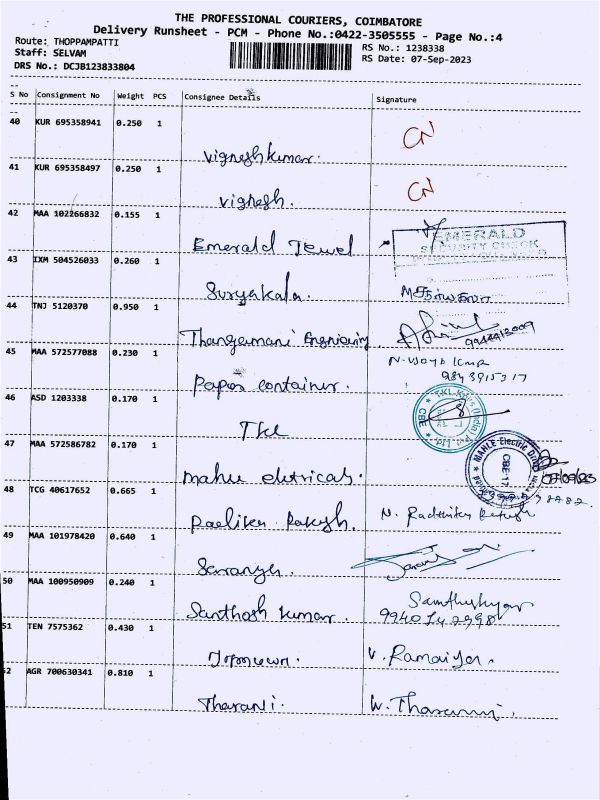 THE PROFESSIONAL COURIERS, COIMBATORE
Delivery Runsheet - PCM - Phone No.:0422-3505555 - Page No.:4
Route: THOPPAMPATTI
Staff: SELVAM
DRS No.: DCJB123833804
RS No.: 1238338
RS Date: 07-Sep-2023
S No Consignment No Weight PCS Consignee Details Signature
40 KUR 695358941 0.250 1 Vigneshkumar. CN
41 KUR 695358497 0.250 1 Vignesh. CN
42 MAA 102266832 0.155 1 Emerald Jewel EMERALD
SECURITY CHECK
43 IXM 504526033 0.260 1 Suryakala.
44 TNJ 5120370 0.950 1 Thangamani Engineering
45 MAA 572577088 0.230 1 Paper container.
9843915317
46 ASD 1203338 0.170 1 TKL CBE
47 MAA 572586782 0.170 1 mahle eletricals. MAHLE Electric
CBE-17
07/09/23
48 TCG 40617652 0.665 1 Rakesh. N. Radhika
49 MAA 101978420 0.640 1 Saranya.
50 MAA 100950909 0.240 1 Santhosh kumar.
51 TEN 7575362 0.430 1 V. Ramaiya.
52 AGR 700630341 0.810 1 Tharani.